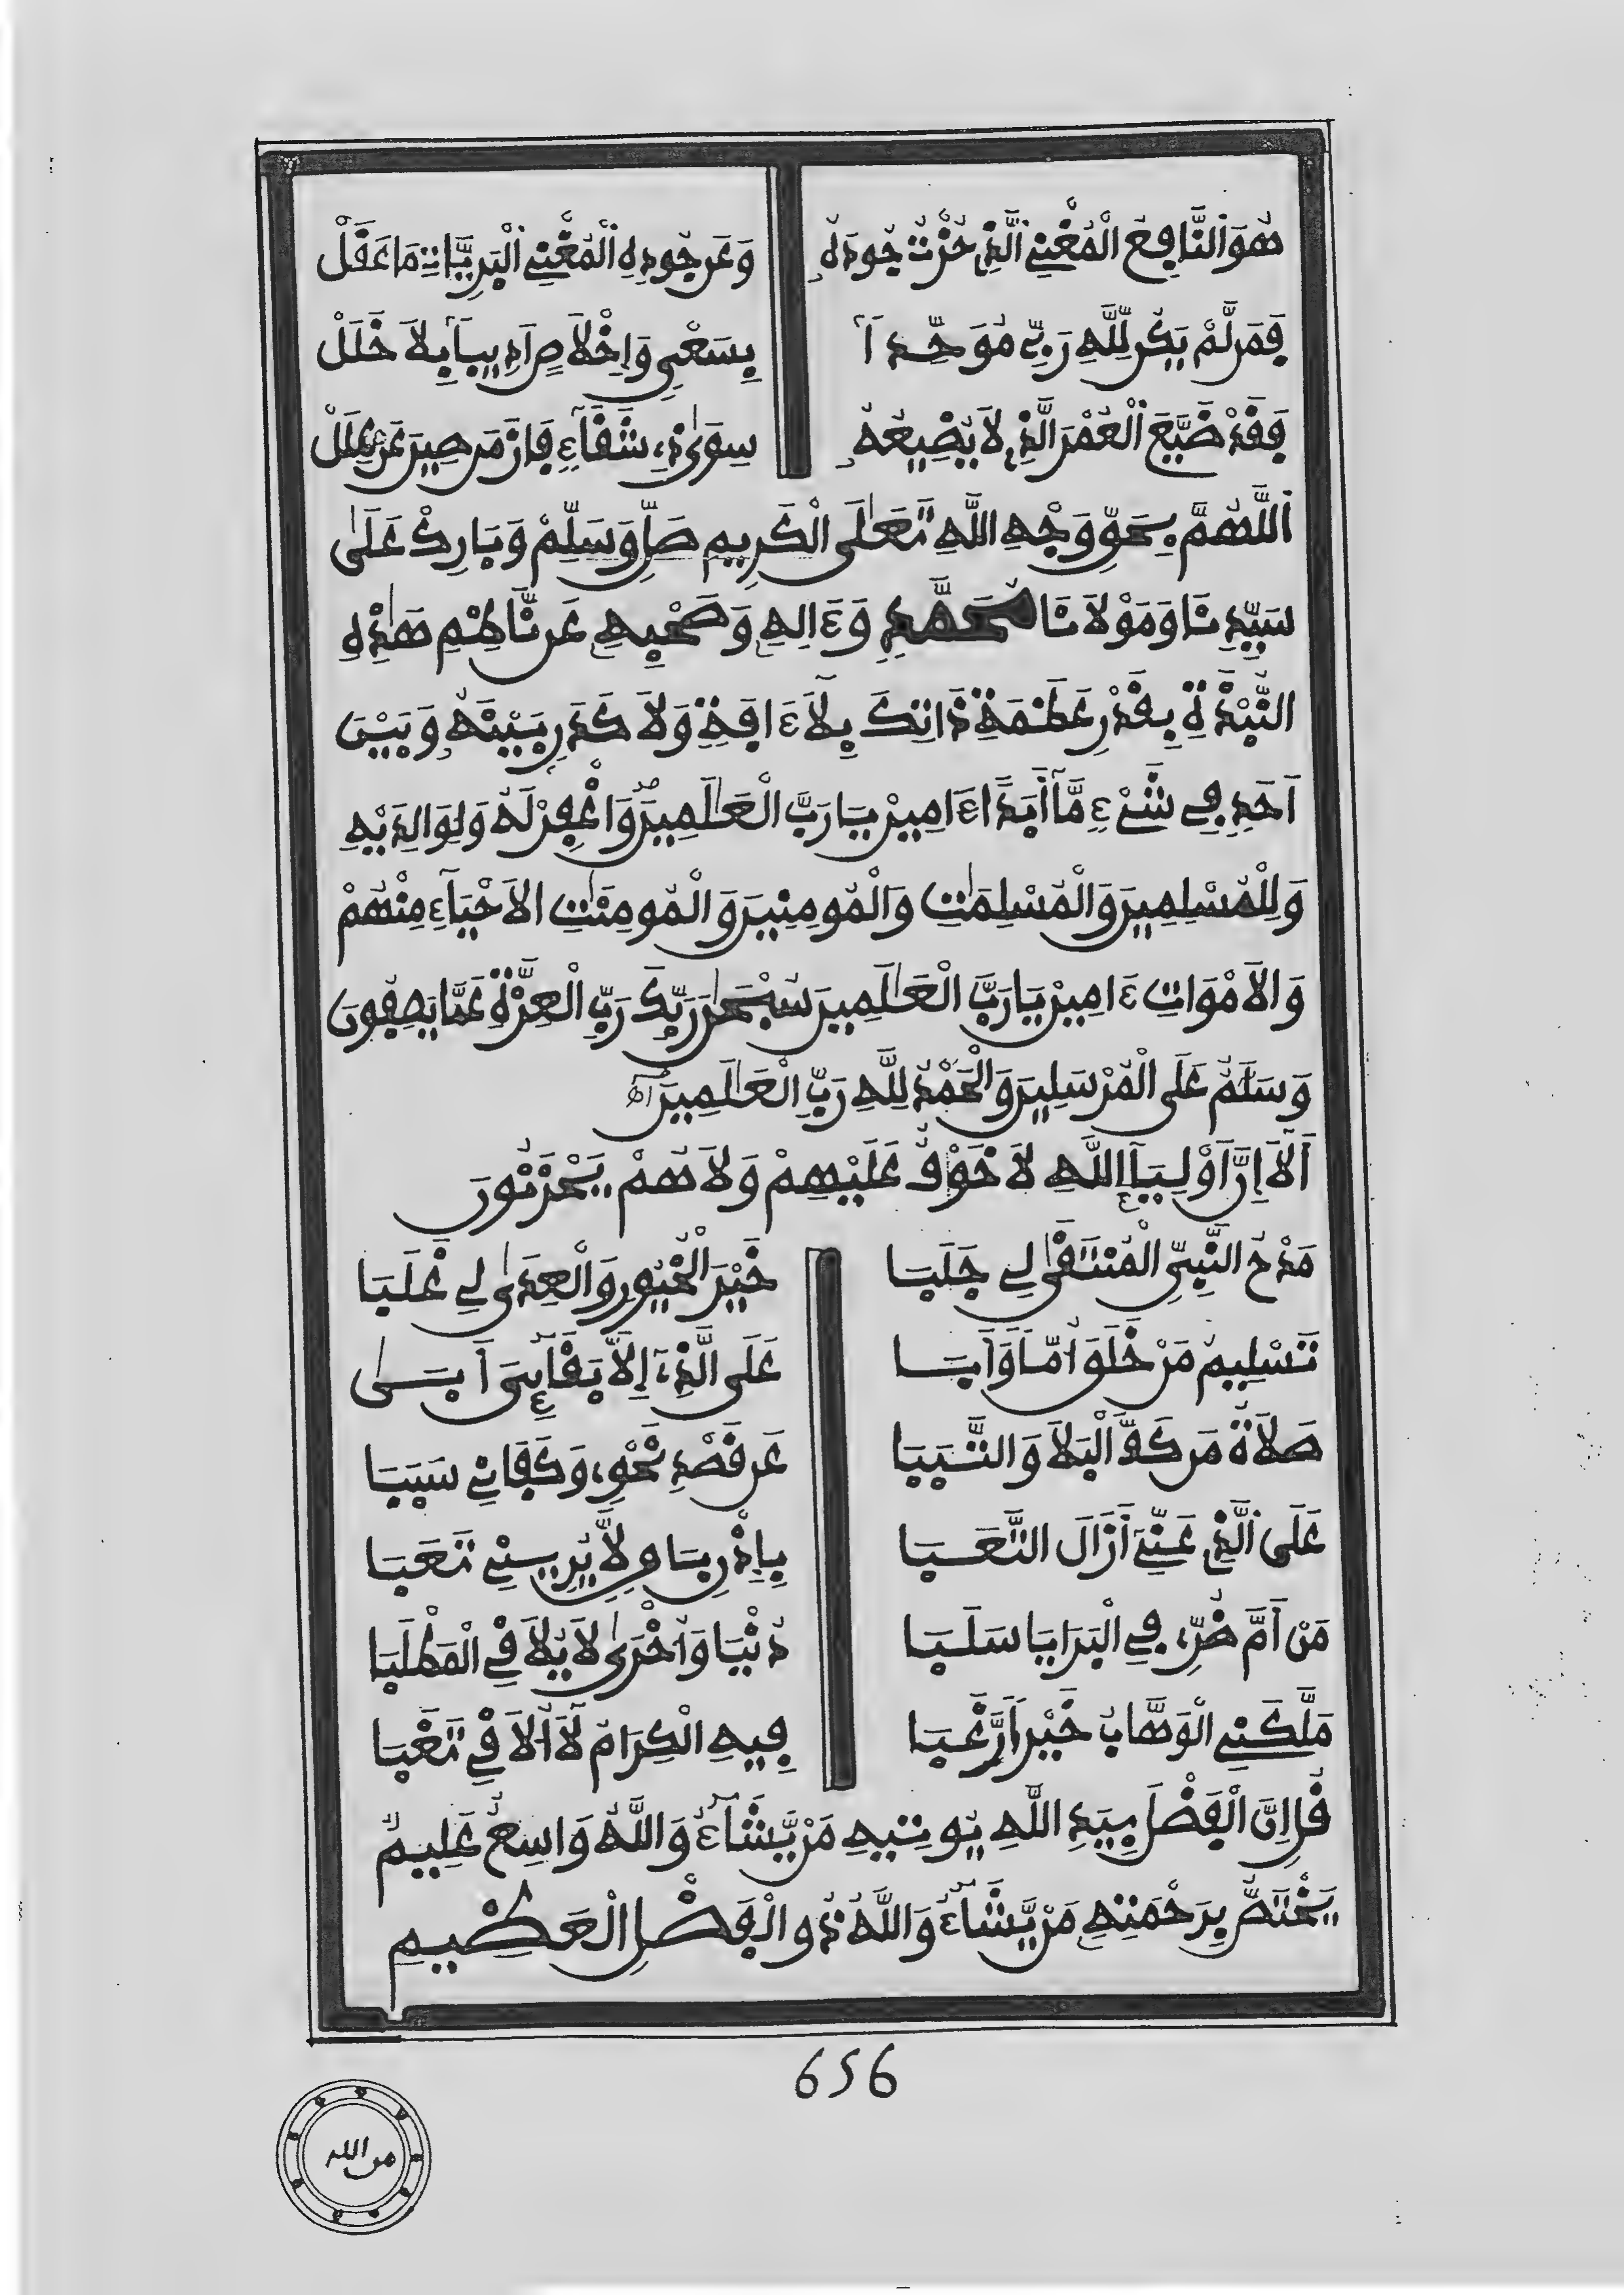 هُوَ النَّافِعُ الْمُغْنِي الَّذِي حُزْتُ جُودَهُ وَعَن جُودِهِ الْمُغْنِي الْبَرِيَّاتِ مَا غَفَلْ
فَمَن لَّمْ يَكُن لِلَّهِ رَبِّي مُوَحِّداً بِسَعْيٍ وَإِخْلَاصٍ ادِيبًا بِلَا خَلَلْ
فَقَدْ ضَيَّعَ الْعُمْرَ الَّذِي لَا يُضِيعُهُ سِوَى ذِي شَقَاءٍ فَازَ مَن صِينَ عَن عِلَلْ
اللَّهُمَّ بِحَقِّ وَجْهِ اللَّهِ تَعَالَى الْكَرِيمِ صَلِّ وَسَلِّمْ وَبَارِكْ عَلَى
سَيِّدِنَا وَمَوْلَانَا مُحَمَّدٍ وَءَالِهِ وَصَحْبِهِ عَن نَّاظِمِ هَذِهِ
النُّبْذَةِ بِقَدْرِ عَظَمَةِ ذَاتِكَ بِلَا ءَافَةٍ وَلَا كَدَرٍ بَيْنَهُ وَبَيْنَ
أَحَدٍ فِي شَيْءٍ مَّا أَبَداً ءَامِينْ يَا رَبَّ الْعَالَمِينَ وَاغْفِرْ لَهُ وَلِوَالِدَيْهِ
وَلِلْمُسْلِمِينَ وَالْمُسْلِمَاتِ وَالْمُومِنِينَ وَالْمُومِنَاتِ الْأَحْيَاءِ مِنْهُمْ
وَالْأَمْوَاتِ ءَامِينْ يَا رَبَّ الْعَالَمِينَ سُبْحَانَ رَبِّكَ رَبِّ الْعِزَّةِ عَمَّا يَصِفُونَ
وَسَلَامٌ عَلَى الْمُرْسَلِينَ وَالْحَمْدُ لِلَّهِ رَبِّ الْعَالَمِينَ اهـ
أَلَا إِنَّ أَوْلِيَاءَ اللَّهِ لَا خَوْفٌ عَلَيْهِمْ وَلَا هُمْ يَحْزَنُونَ
مَدْحُ النَّبِيِّ الْمُنْتَقَى لِي جَلَبَا خَيْرَ الْخُيُورِ وَالْعِدَى لِي غَلَبَا
تَسْلِيمُ مَنْ خَلَقَ أُمّاً وَأَبَا عَلَى الَّذِي إِلَّا بَقَائِيَ أَبَى
صَلَاةُ مَن كَفَّ الْبَلَا وَالتَّبَبَا عَن قَصْدِ نَحْوِي وَكَفَانِي سَبَبَا
عَلَى الَّذِي عَنِّيَ أَزَالَ التَّعَبَا بِإِذْنِ بَاقٍ لَا يُرِينِي تَعَبَا
مَنْ أَمَّ ضُرِّي فِي الْبَرَايَا سَلَبَا دُنْيَا وَأُخْرَى لَا يُلَاقِي الْمَطْلَبَا
مَلَّكَنِي الْوَهَّابُ خَيْراً رَّغِبَا فِيهِ الْكِرَامُ لَا أُلَاقِي تَغَبَا
قُلْ إِنَّ الْفَضْلَ بِيَدِ اللَّهِ يُوتِيهِ مَنْ يَّشَاءُ وَاللَّهُ وَاسِعٌ عَلِيمٌ
يَخْتَصُّ بِرَحْمَتِهِ مَنْ يَّشَاءُ وَاللَّهُ ذُو الْفَضْلِ الْعَظِيمِ
656
من الله